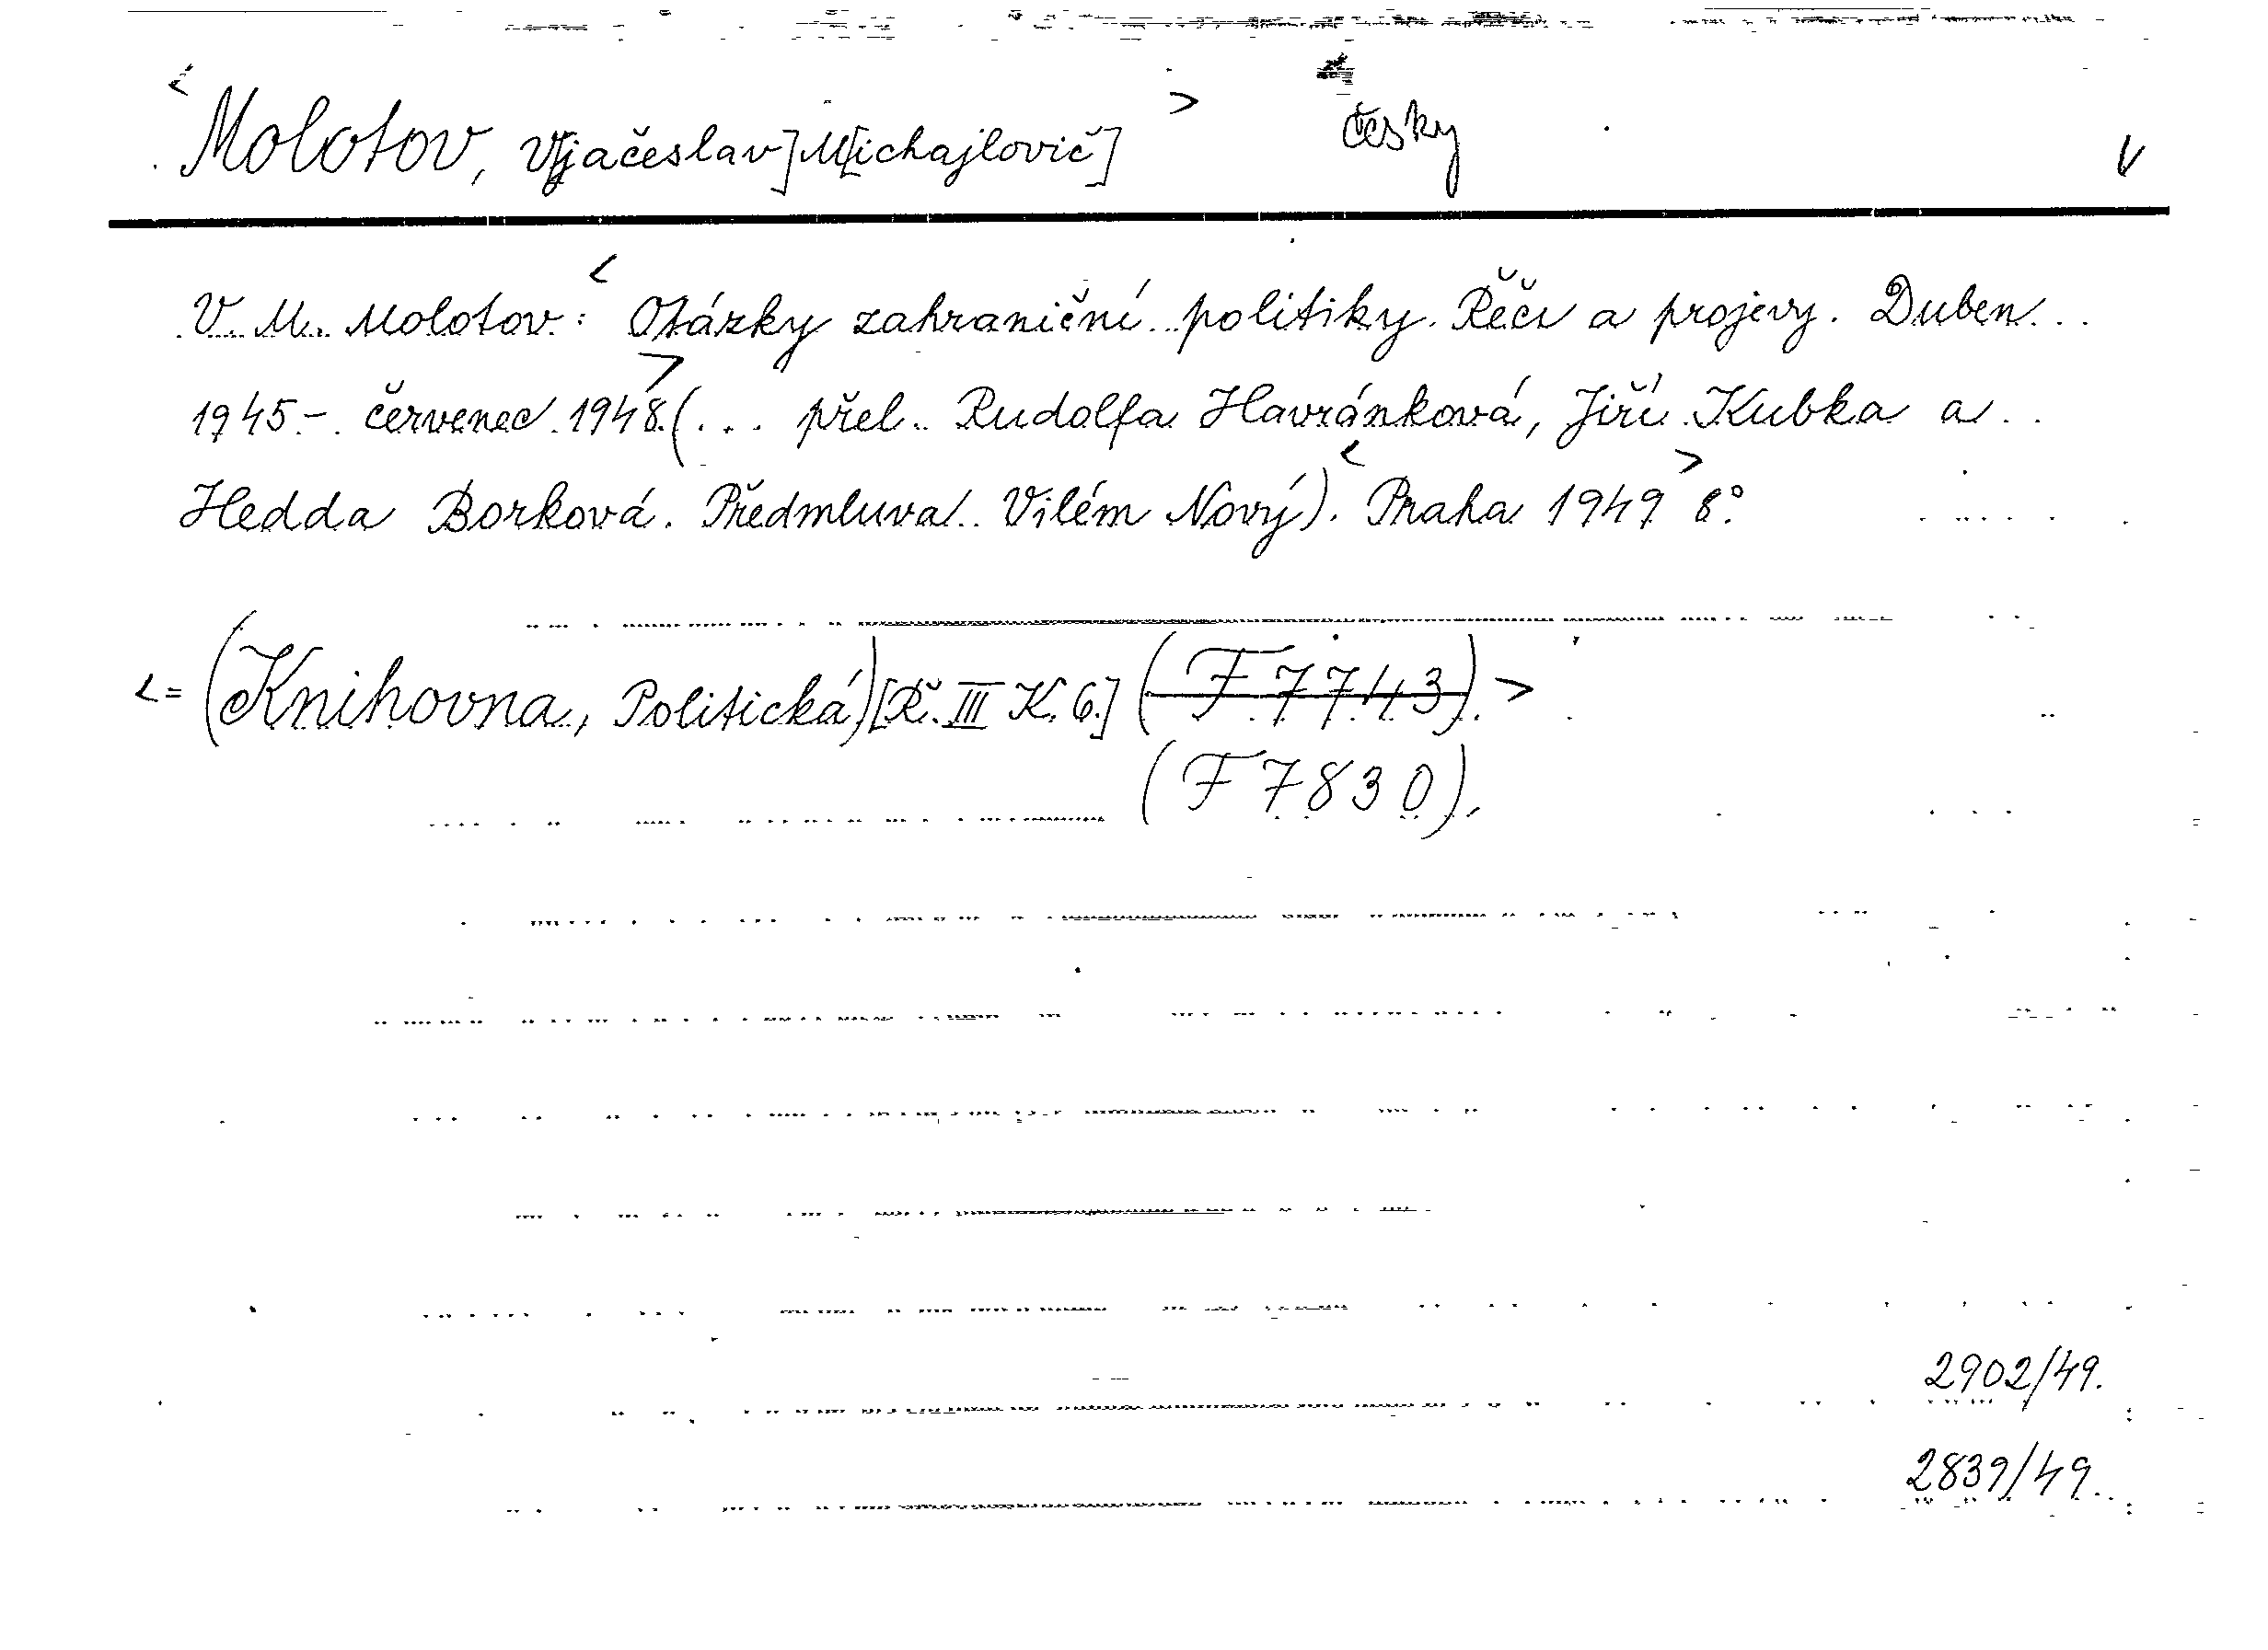 <Molotov, V[jačeslav] M[ichajlovič]> česky V
V. M. Molotov: <Otázky zahraniční politiky. Řeči a projevy. Duben
1945 - červenec 1948.> (... přel. Rudolfa Havránková, Jiří Kubka a
Hedda Borková. Předmluva Vilém Nový). <Praha 1949> 8°
<= (Knihovna, Politická) [Ř. III K. 6.] (F 7743).>
(F 7830).
2902/49.
2839/49.